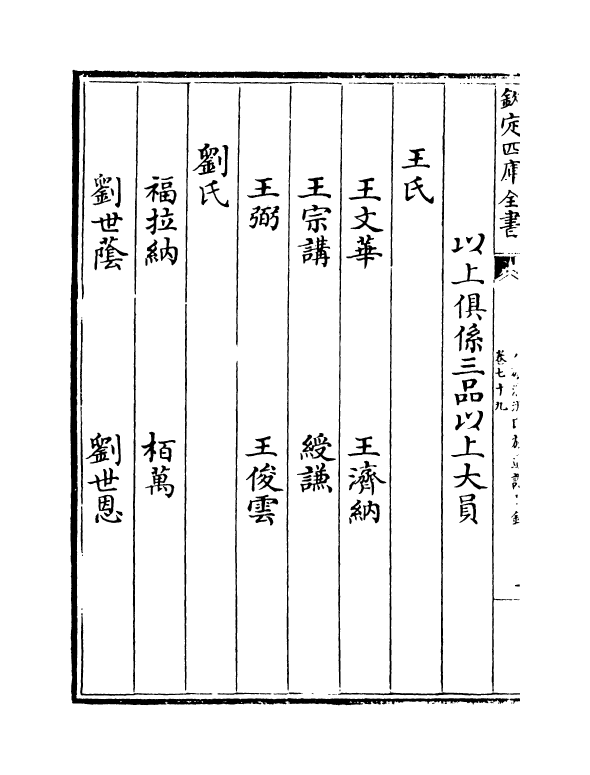 欽定四庫全書
卷七十九
以上俱係三品以上大員
王氏
王文華　王濟納
王宗講　綬謙
王弼　王俊雲
劉氏
福拉納　栢萬
劉世蔭　劉世恩